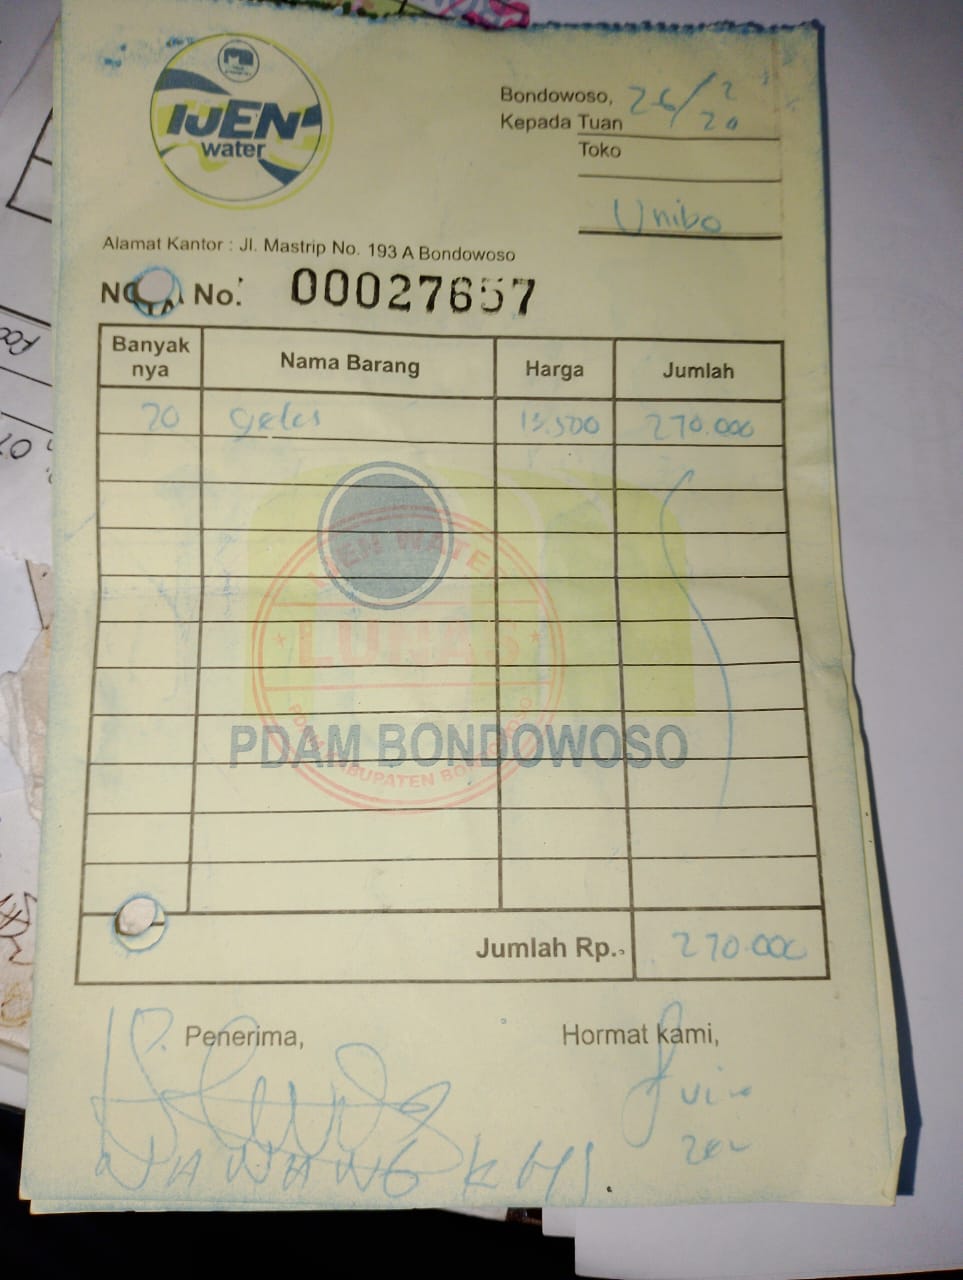 IJEN
water
Bondowoso, 26/2 20
Kepada Tuan
Toko
Unibo
Alamat Kantor : Jl. Mastrip No. 193 A Bondowoso
No. 00027657
Banyak nya Nama Barang Harga Jumlah
20 gelas 13.500 270.000
IJEN WATER
LUNAS
PDAM KABUPATEN BONDOWOSO
PDAM BONDOWOSO
Jumlah Rp. 270.000
Penerima, Hormat kami,